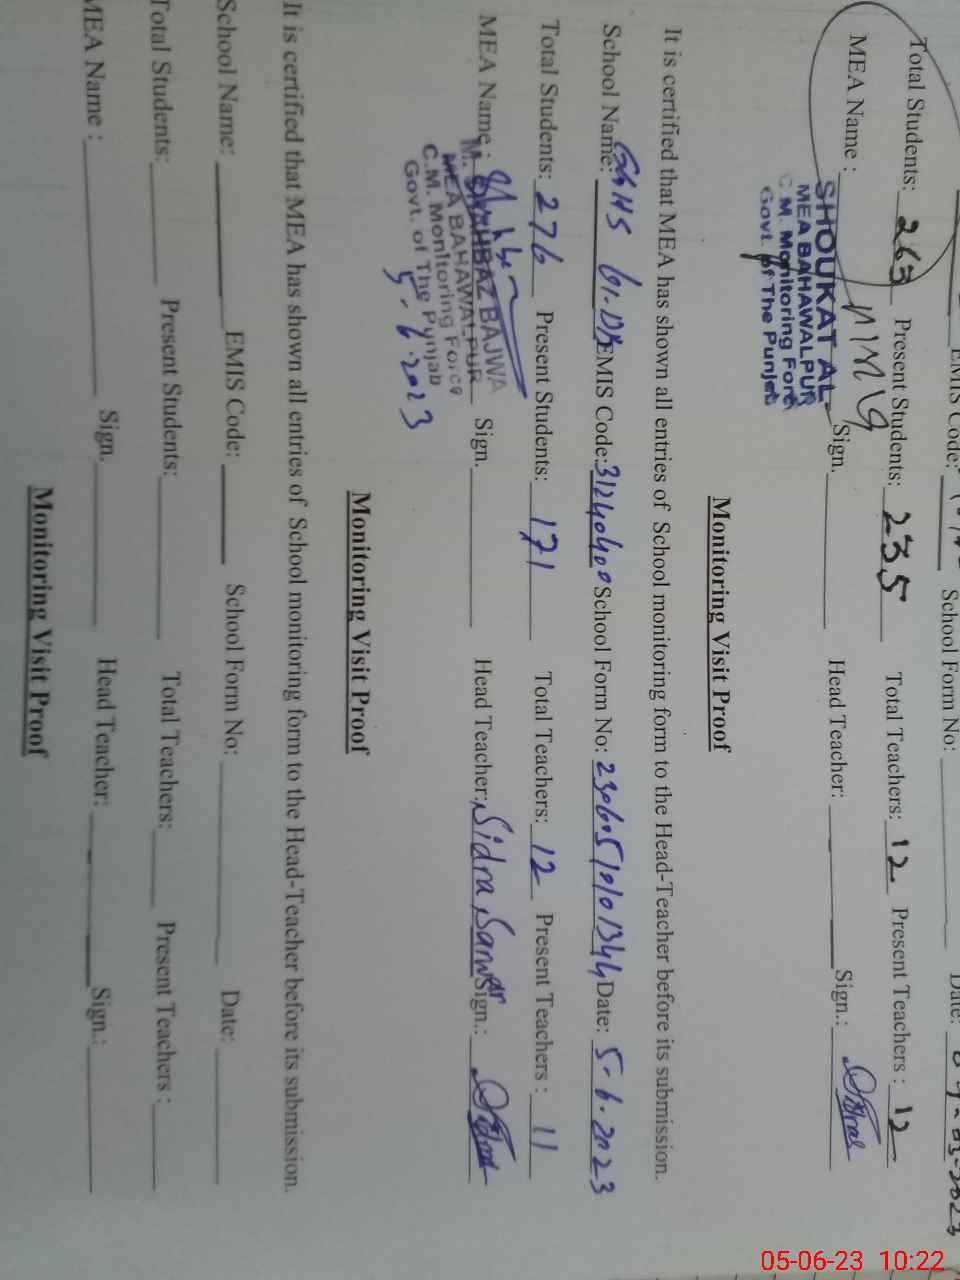 EMIS Code: School Form No: Date:
Total Students: 263 Present Students: 235 Total Teachers: 12 Present Teachers : 12
MEA Name : Sign. Head Teacher: Sign.:
SHOUKAT AL
MEA BAHAWALPUR
C.M. Monitoring Force
Govt. of The Punjab
Monitoring Visit Proof
It is certified that MEA has shown all entries of School monitoring form to the Head-Teacher before its submission.
School Name: GGHS 61.DB EMIS Code: 31240400 School Form No: Date: 5-6-2023
Total Students: 276 Present Students: 171 Total Teachers: 12 Present Teachers : 11
MEA Name : Sign. Head Teacher: Sidra Sarwar Sign.:
M. SHAHBAZ BAJWA
MEA BAHAWALPUR
C.M. Monitoring Force
Govt. of The Punjab
5-6-2023
Monitoring Visit Proof
It is certified that MEA has shown all entries of School monitoring form to the Head-Teacher before its submission.
School Name: EMIS Code: School Form No: Date:
Total Students: Present Students: Total Teachers: Present Teachers :
MEA Name : Sign. Head Teacher: Sign.:
Monitoring Visit Proof
05-06-23 10:22